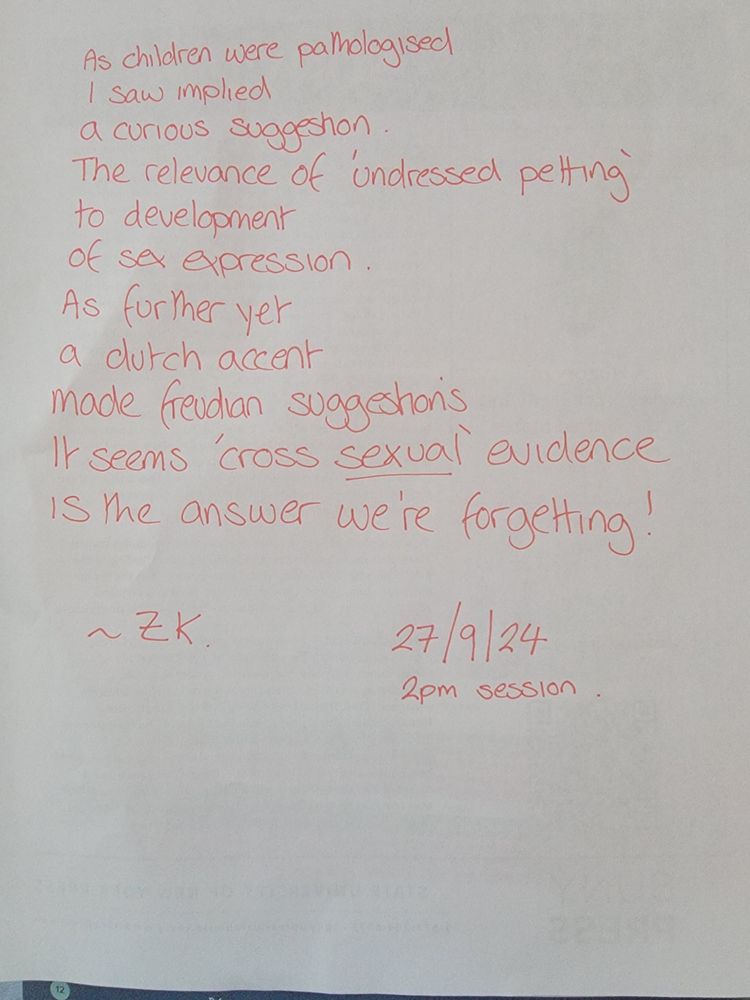 As children were pathologised
I saw implied
a curious suggestion.
The relevance of 'undressed petting'
to development
of sex expression.
As further yet
a dutch accent
made freudian suggestions
It seems 'cross sexual' evidence
is the answer we're forgetting!
~ ZK.
27/9/24
2pm session.
STATE UNIVERSITY OF NEW YORK PRESS
PRESS
12